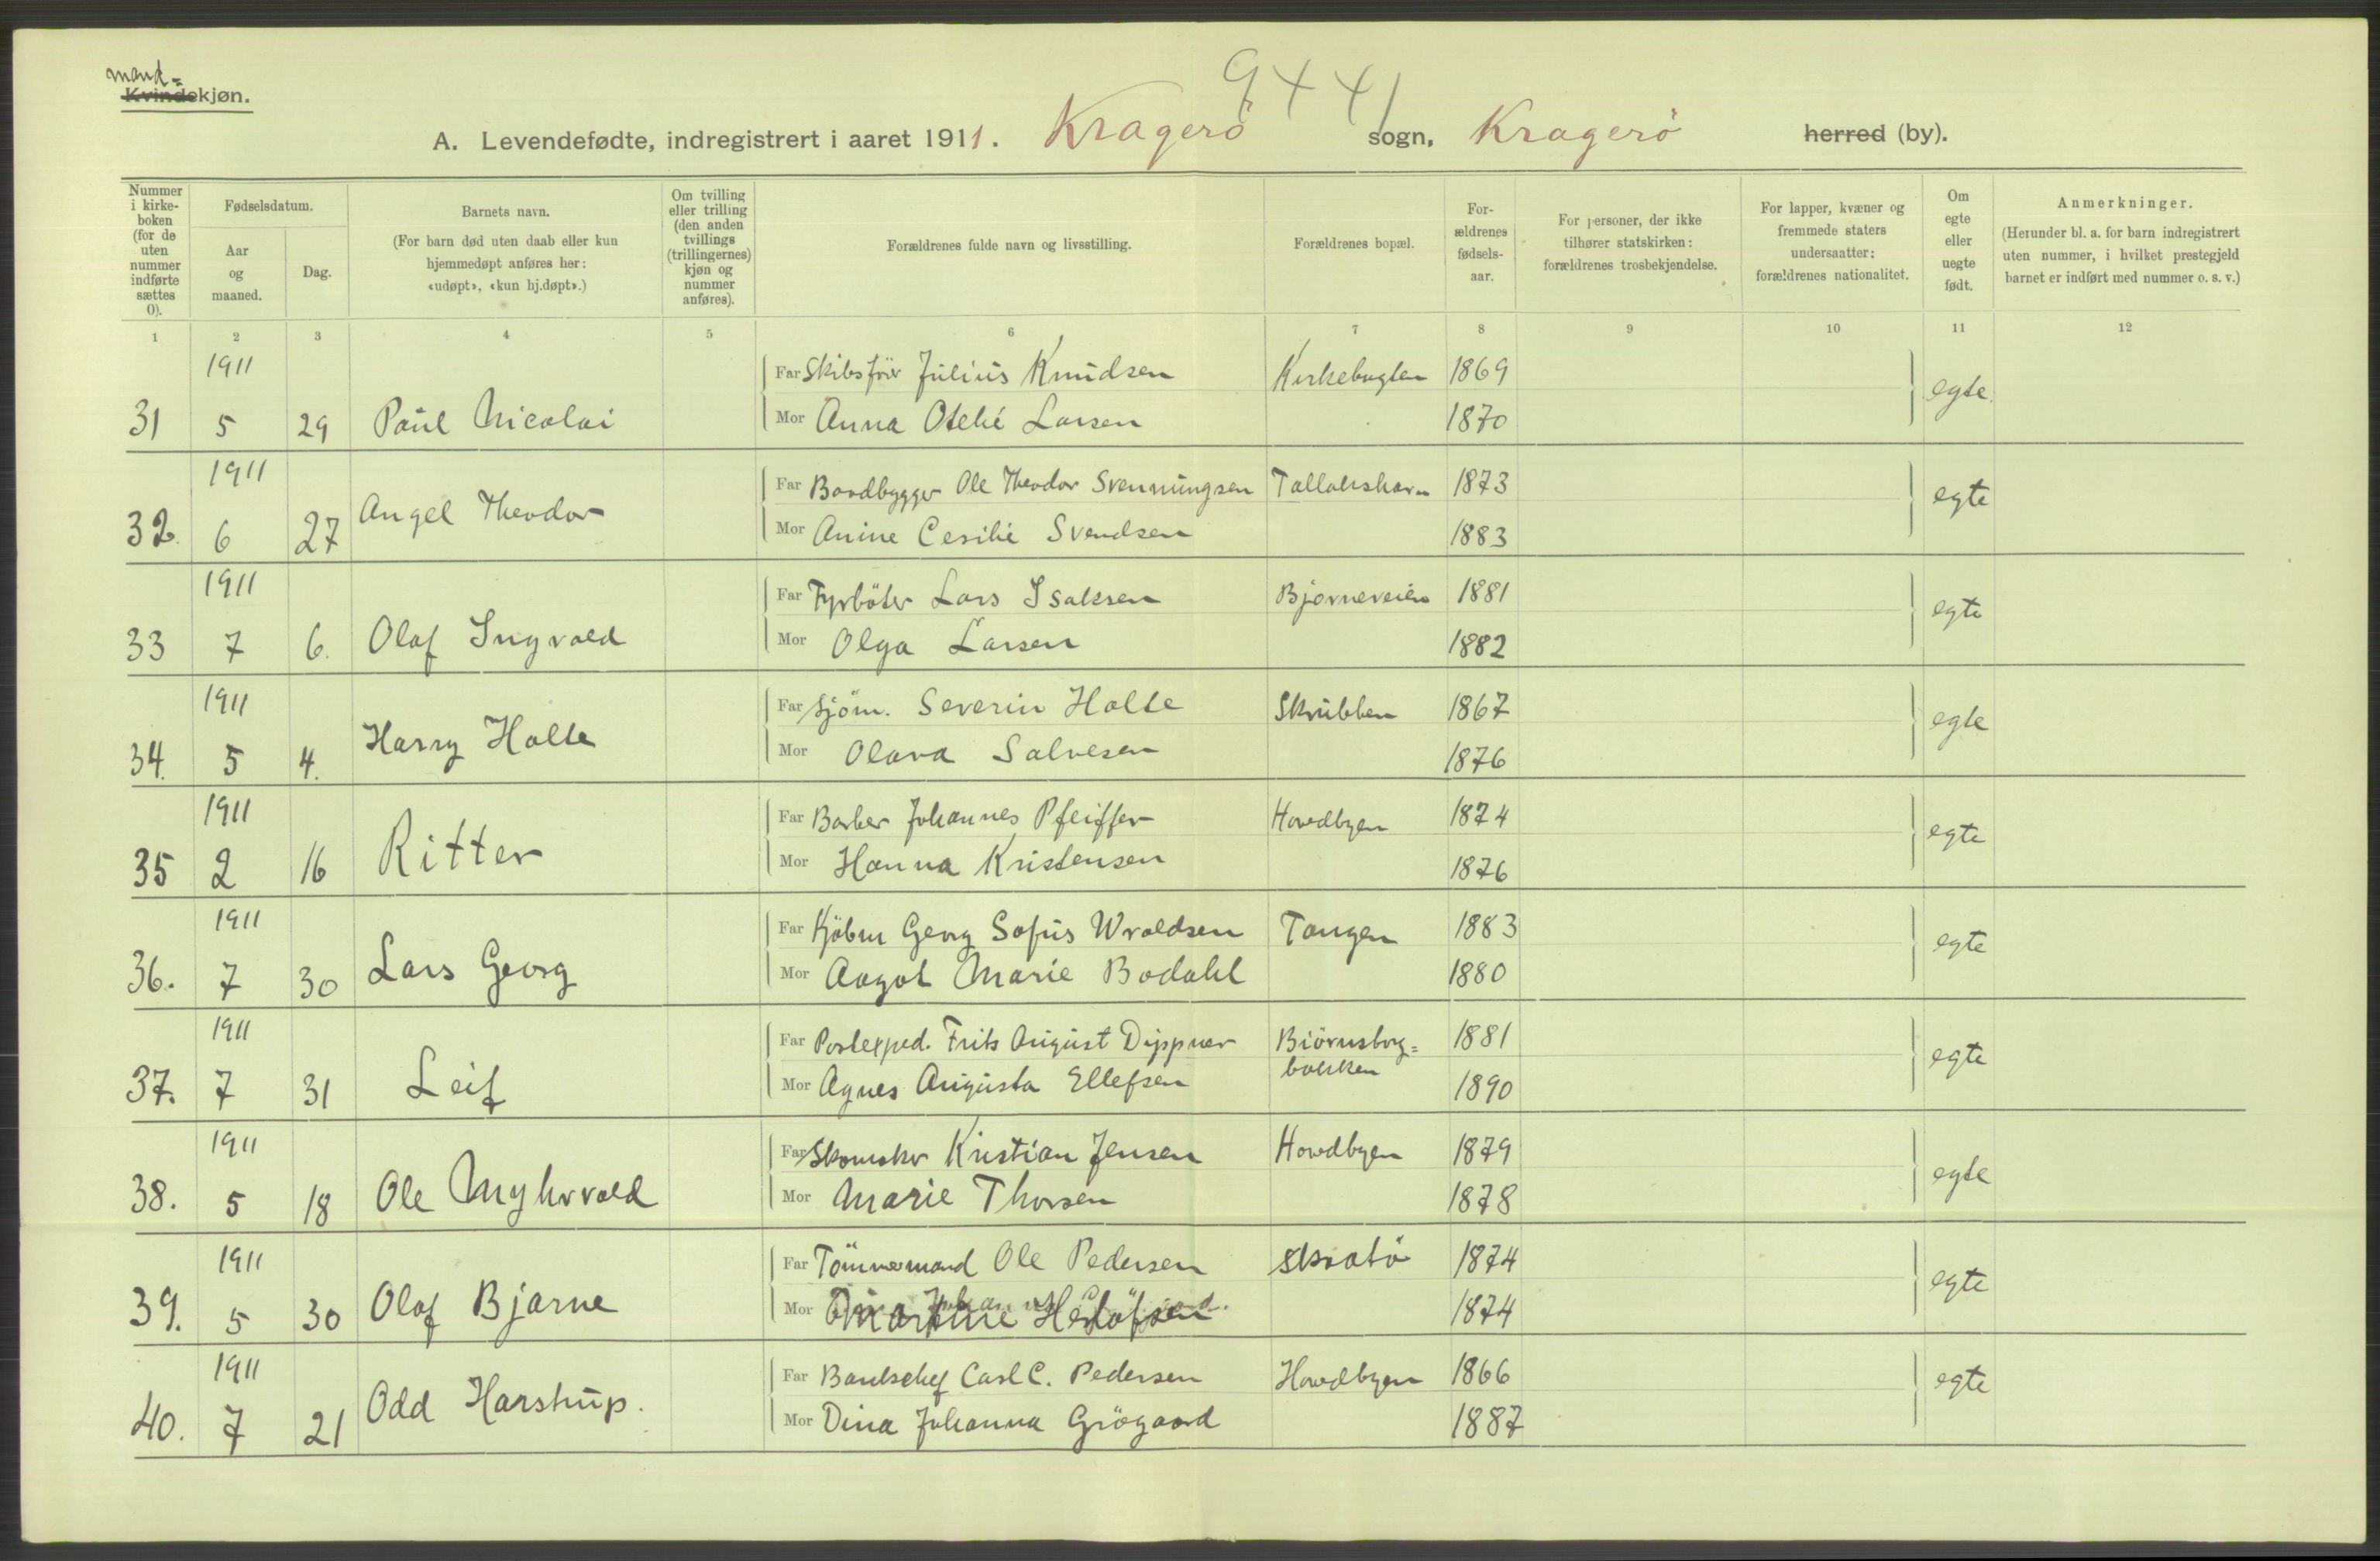 mand=
Kvindekjøn.
9441
A. Levendefødte, indregistrert i aaret 1911. Kragerö sogn, Kragerö herred (by).
Nummer i kirke-boken (for de uten nummer indførte sættes 0).
Fødselsdatum.
Aar og maaned.
Dag.
Barnets navn.
(For barn død uten daab eller kun hjemmedøpt anføres her: «udøpt», «kun hj.døpt».)
Om tvilling eller trilling (den anden tvillings (trillingernes) kjøn og nummer anføres).
Forældrenes fulde navn og livsstilling.
Forældrenes bopæl.
For-ældrenes fødsels-aar.
For personer, der ikke tilhører statskirken: forældrenes trosbekjendelse.
For lapper, kvæner og fremmede staters undersaatter: forældrenes nationalitet.
Om egte eller uegte født.
Anmerkninger.
(Herunder bl. a. for barn indregistrert uten nummer, i hvilket prestegjeld barnet er indført med nummer o. s. v.)
1 2 3 4 5 6 7 8 9 10 11 12
1911 Far Skibsför Julius Knudsen Kirkebugten 1869 egte
31 5 29 Paul Nicolai Mor Anna Otelie Larsen 1870
1911 Far Baadbygger Ole Theodor Svenningsen Tallakshavn 1873 egte
32. 6 27 Angel Theodor Mor Anine Cesilie Svendsen 1883
1911 Far Fyrböter Lars Isaksen Bjørneveien 1881 egte
33 7 6. Olaf Ingvald Mor Olga Larsen 1882
1911 Far Sjöm. Severin Holte Skrubben 1867 egte
34. 5 4. Harry Holte Mor Olava Salvesen 1876
1911 Far Barber Johannes Pfeiffer Hovedbyen 1874 egte
35 2 16 Ritter Mor Hanna Kristensen 1876
1911 Far Kjöbm Georg Sofus Wroldsen Tangen 1883 egte
36. 7 30 Lars Georg Mor Aagot Marie Bodahl 1880
1911 Far Postexped. Frits August Dippner Biörnsborg= 1881 egte
bakken
37. 7 31 Leif Mor Agnes Augusta Ellefsen 1890
1911 Far Skomaker Kristian Jensen Hovedbyen 1879 egte
38. 5 18 Ole Myhrvold Mor Marie Thorsen 1878
1911 Far Tömmermand Ole Pedersen Skaatö 1874 egte
39. 5 30 Olaf Bjarne Mor 1874
1911 Far Bankchef Carl C. Pedersen Hovedbyen 1866 egte
40. 7 21 Odd Harstrup. Mor Dina Johanna Grögaard 1887